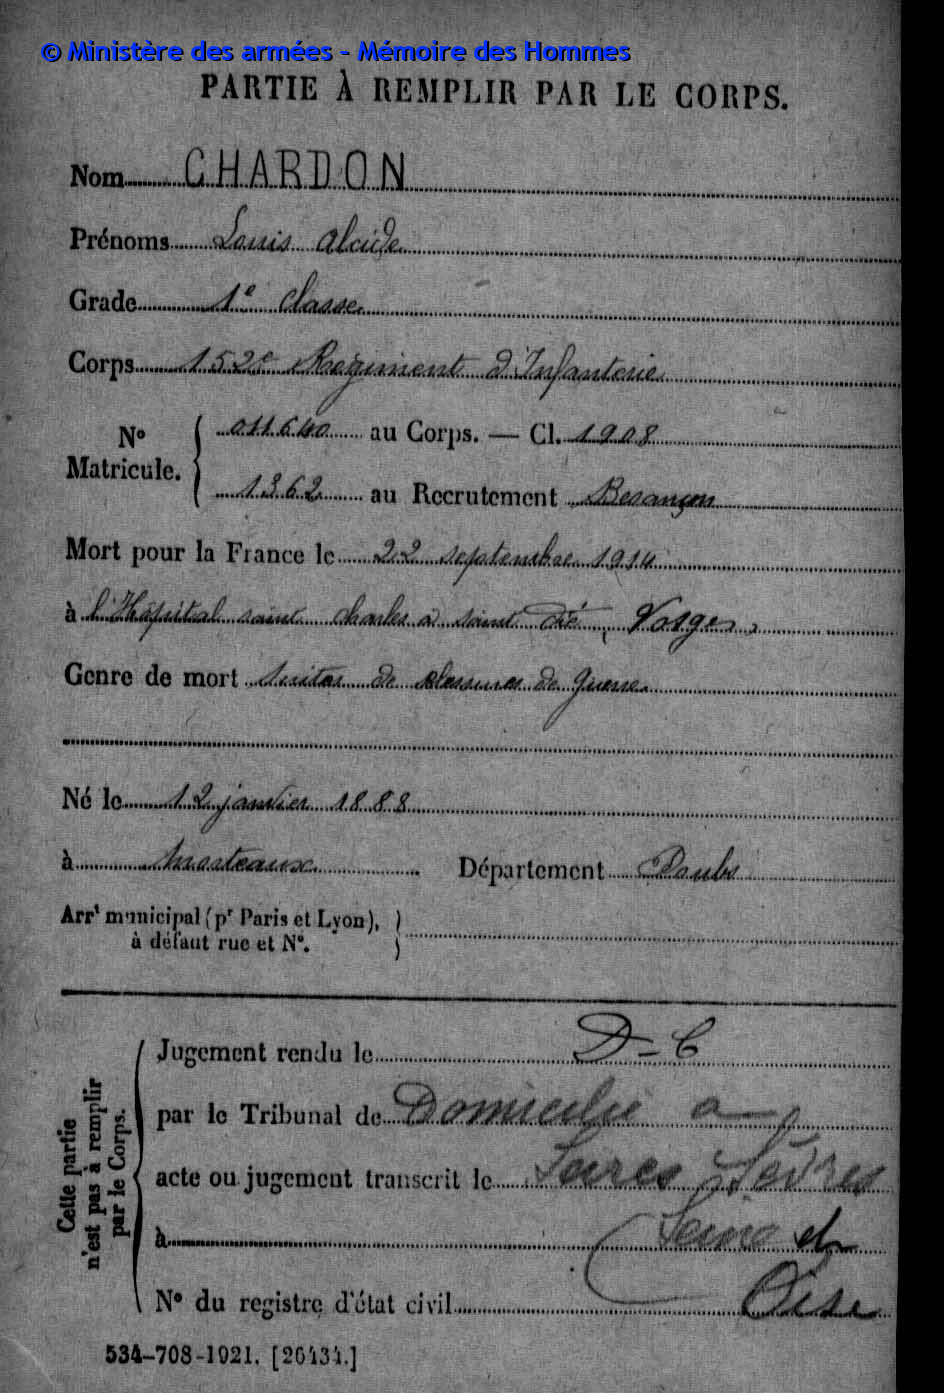 © Ministère des armées - Mémoire des Hommes
PARTIE À REMPLIR PAR LE CORPS.
Nom CHARDON
Prénoms Louis Alcide
Grade 1e classe
Corps 152e Régiment d'Infanterie
No Matricule. 011640 au Corps. — Cl. 1908
1362 au Recrutement Besançon
Mort pour la France le 22 septembre 1914
à l'Hôpital saint charles à saint dié, Vosges
Genre de mort suites de blessures de guerre
Né le 12 janvier 1888
à Morteaux Département Doubs
Arrt municipal (pr Paris et Lyon), à défaut rue et No.
Cette partie n'est pas à remplir par le Corps.
Jugement rendu le D-C
par le Tribunal de Domicilié a
acte ou jugement transcrit le Sèvres
à Seine et
No du registre d'état civil Oise
534-708-1921. [26434.]